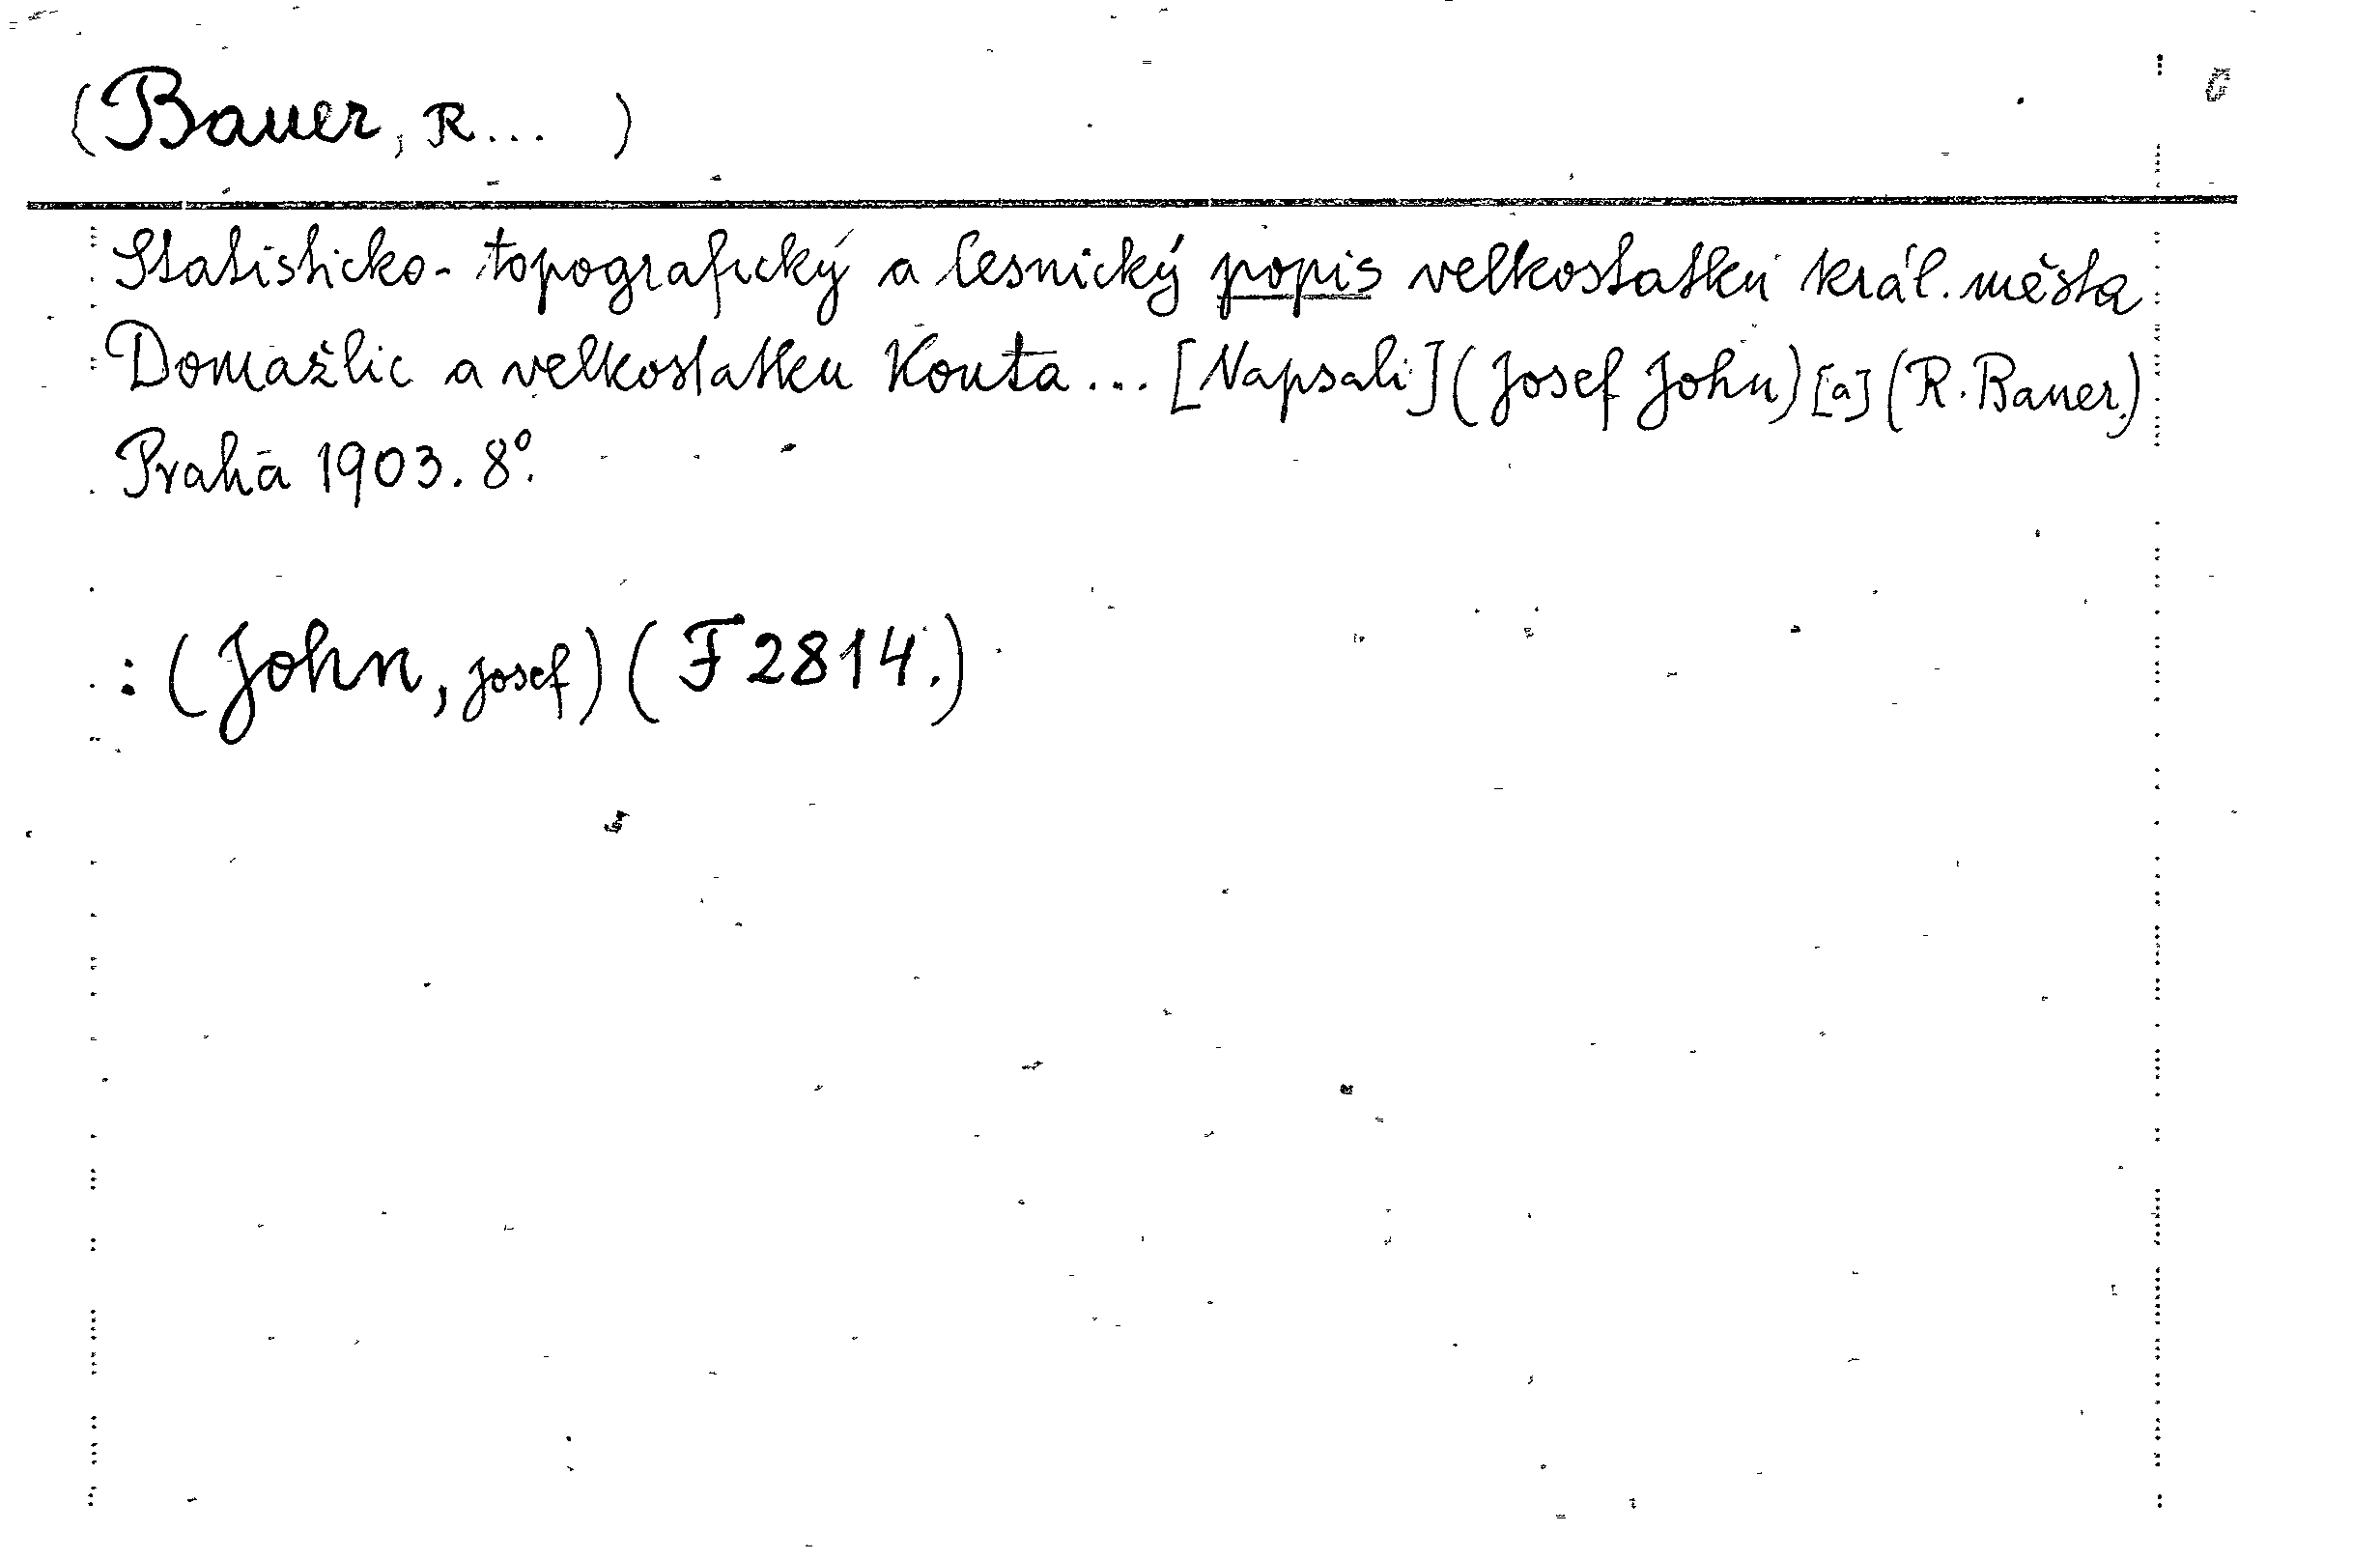 (Bauer, R... )
Statisticko-topografický a lesnický popis velkostatku král. města
Domažlic a velkostatku Kouta... [Napsali] (Josef John) [a] (R. Bauer.)
Praha 1903. 8°.
: (John, Josef) (F 2814.)